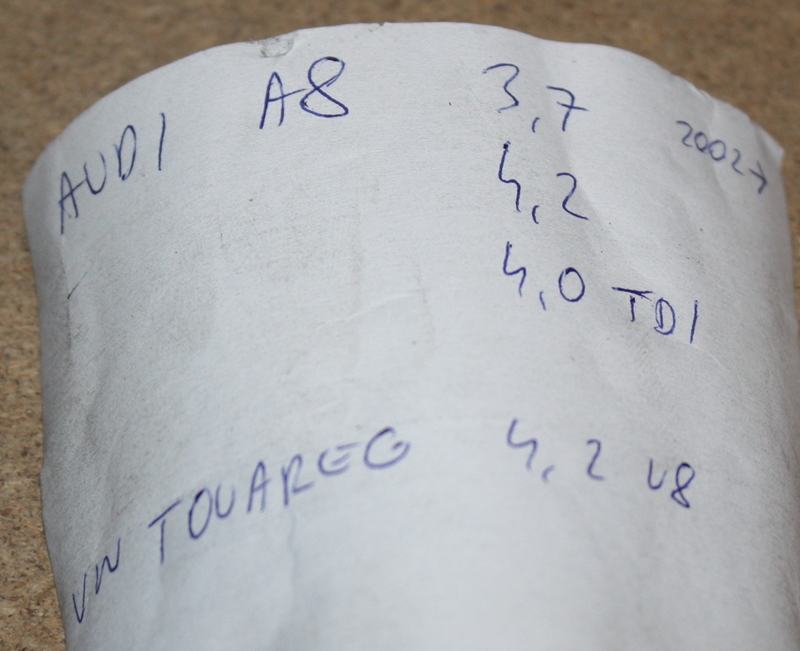 AUDI A8 3,7 2002→
4,2
4,0 TDI
VW TOUAREG 4,2 V8